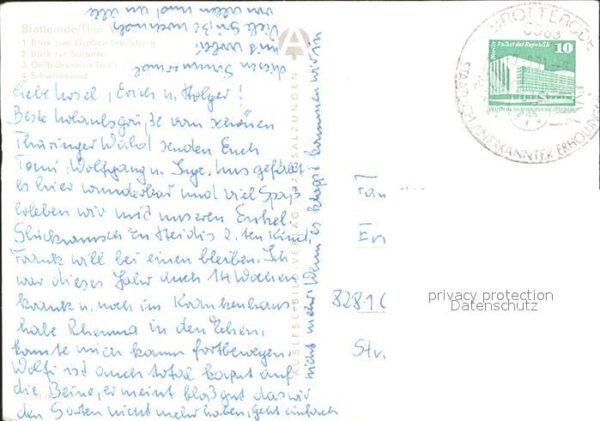 Brotterode/Thür.
1 Blick zum Großen Inselsberg
4 Schwimmbad
Liebe Ursel, Erich u. Holger!
Beste Urlaubsgrüße vom schönen
Thüringer Wald senden Euch
Tomi, Wolfgang u. Inge. Uns gefällt
es hier wunderbar und viel Spaß
erleben wir mit unseren Enkel.
Glückwunsch zu Heidis 2. ten Kind
Frank will bei einen bleiben. Ich
war dieses Jahr auch 14 Wochen
krank u. noch im Krankenhaus
habe Rheuma in den Zehen,
konnte mich kaum fortbewegen
Wolfi ist auch total kaput auf
die Beine, er meint bloß gut das wir
den Garten nicht mehr haben, geht einfach
nicht mehr. Wenn es klappt kommen wir in
diesen Sommer mal
und wobei
Viele Grüße nochmals
von allen und an alle
AUSLESE-BILD-VERLAG BAD SALZUNGEN
BROTTERODE
STAATLICH ANERKANNTER ERHOLUNGS
Palast der Republik
10
DDR
Fam
En
8281
Str.
privacy protection
Datenschutz